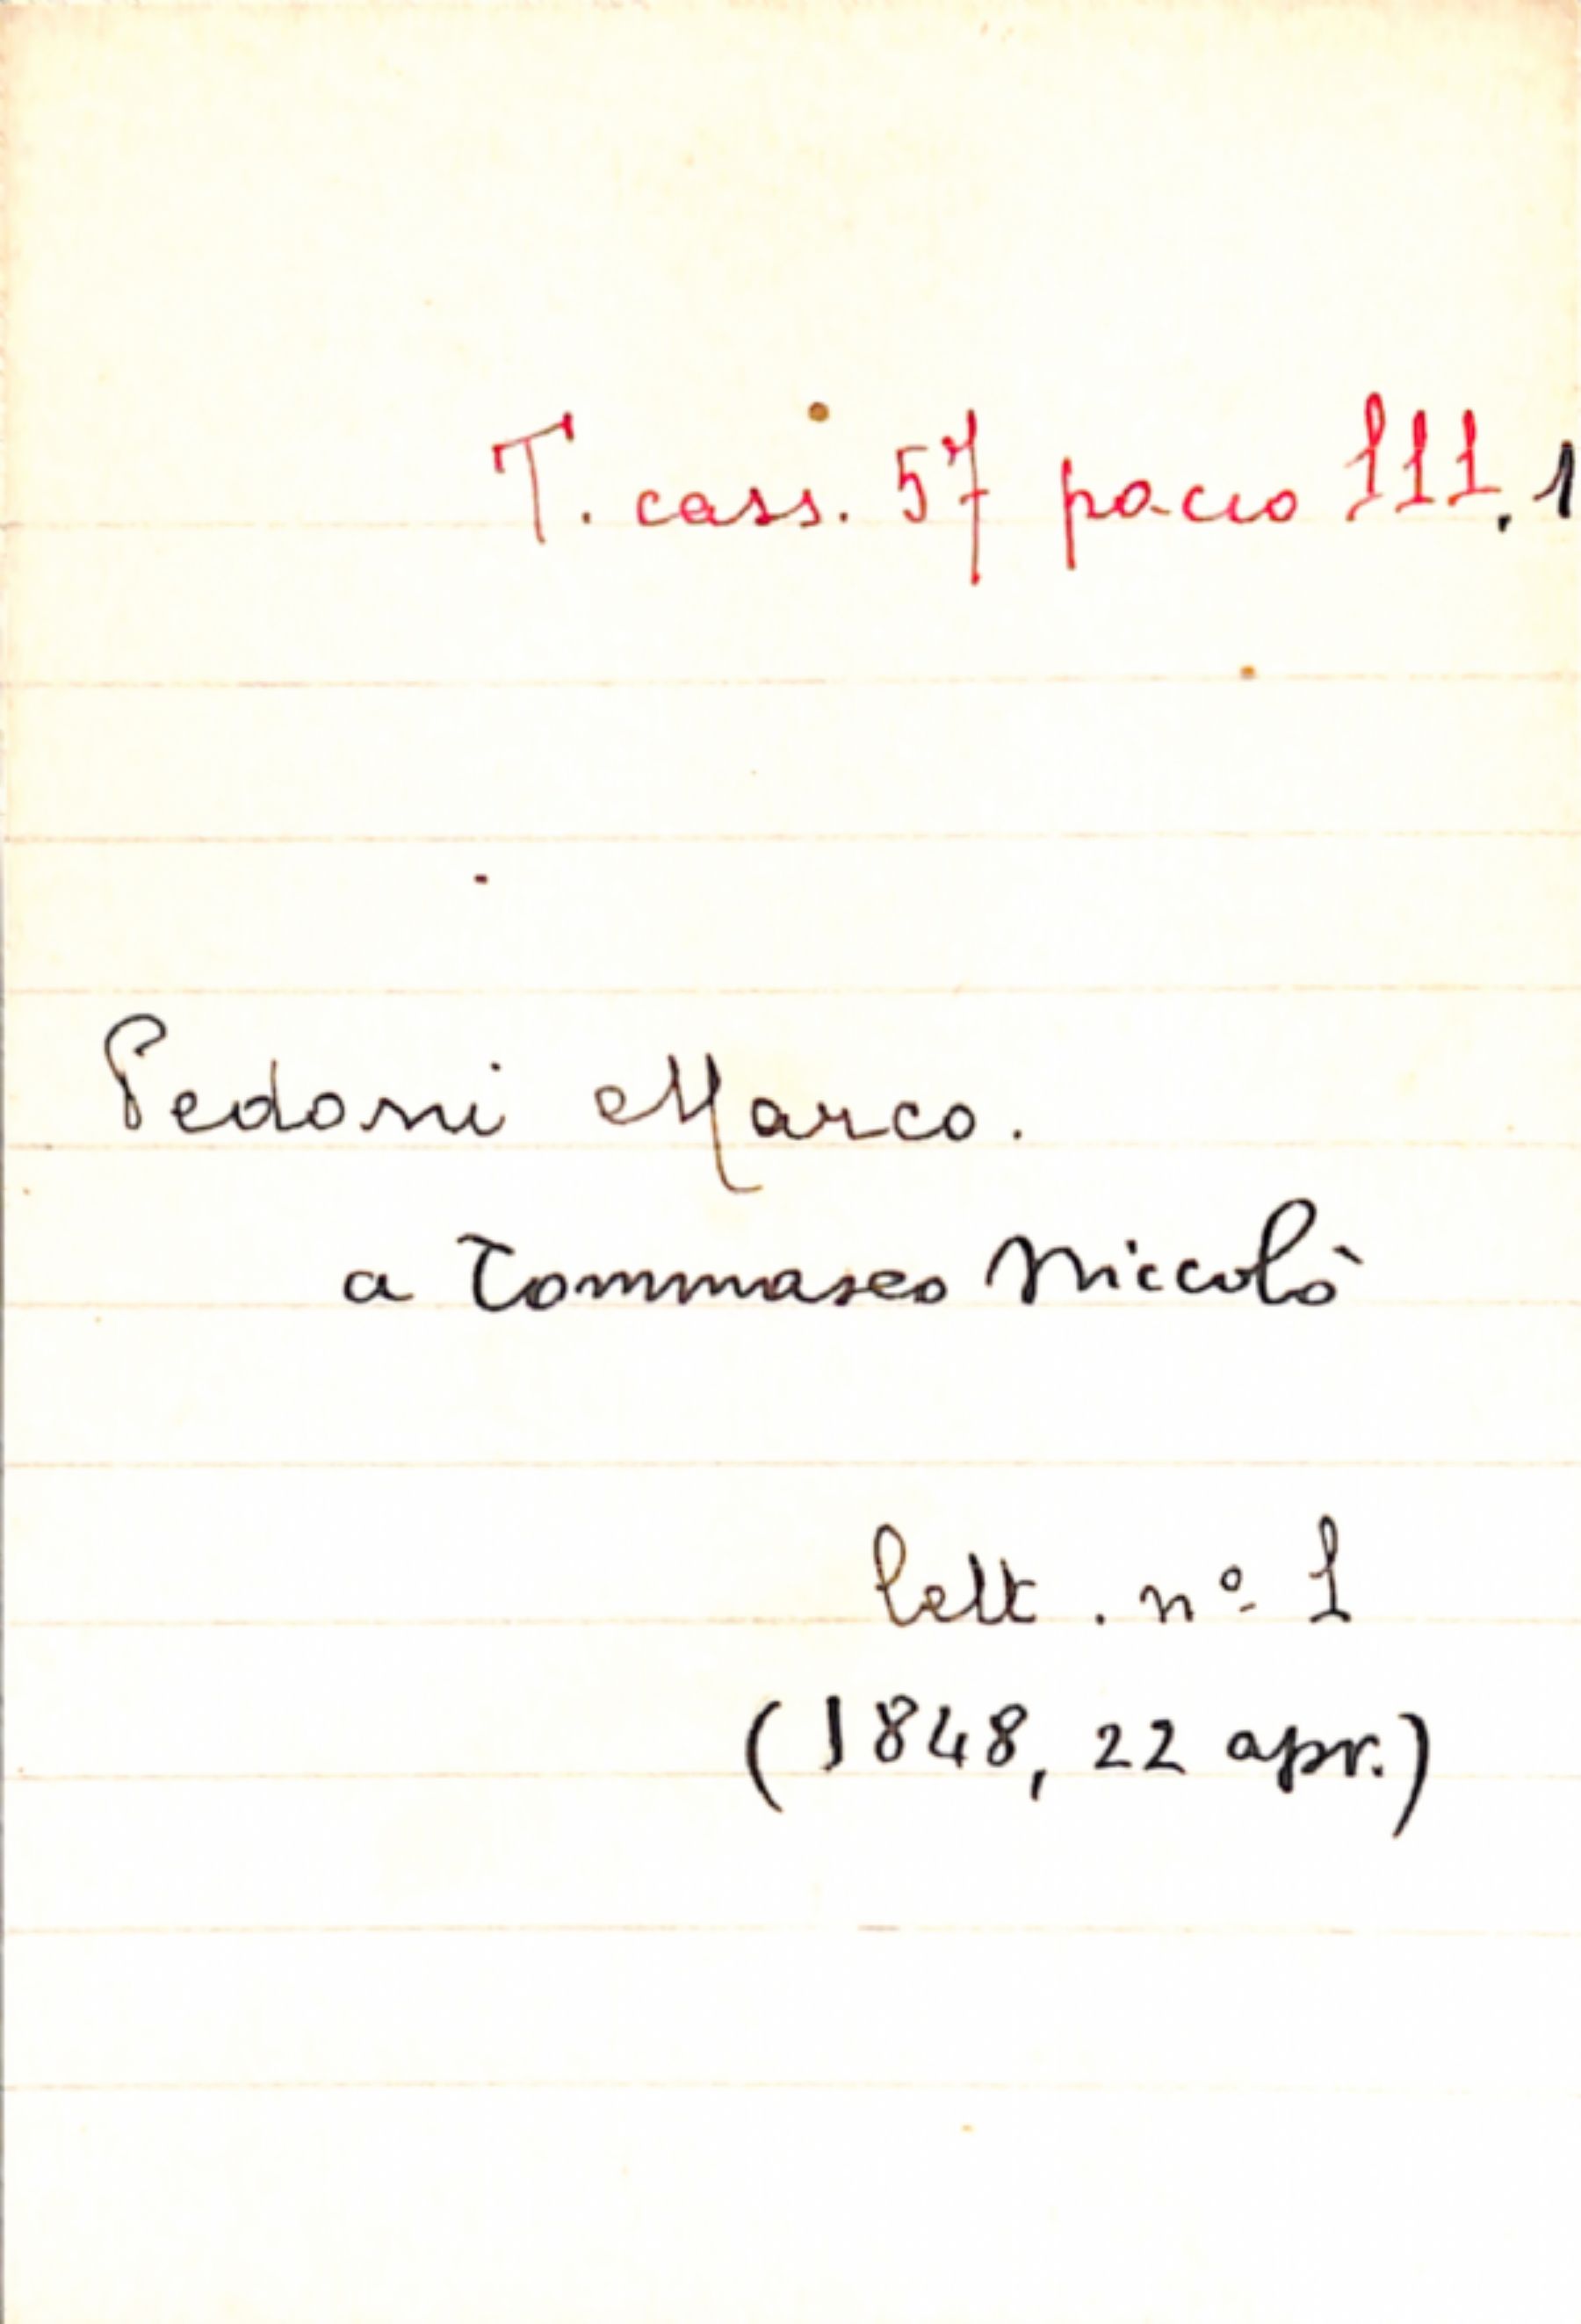 T. cass. 57 pacco III. 1
Pedoni Marco.
a Tommaseo Niccolò
lett. nº 1
(1848, 22 apr.)